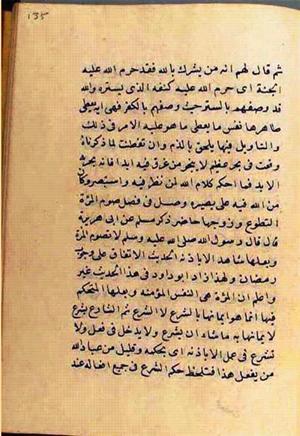 ١٣٥
ثم قال لهم انه من يشرك بالله فقد حرم الله عليه
الجنة اى حرم الله عليه كنفه الذى يستره والله
قد وصفهم بالستر حيث وصفهم بالكفر فهى آية يعطى
ظاهرها نفس ما يعطى ما هو عليه الامر فى ذلك
والتاويل فيها يلحق بالذم وان تفطنت لما ذكرناه
وقعت فى بحر عظيم لا ينجو من غرق فيه ابدا فانه بحر
الابد فما احكم كلام الله لمن نظر فيه واستبصر وكان
من الله فيه على بصيرة وصل فى فصل صوم المرأة
التطوع وزوجها حاضر ذكر مسلم عن ابى هريرة
قال قال رسول الله صلى الله عليه وسلم لا تصوم المرأة
وبعلها شاهد الا باذنه الحديث الاتفاق على وجوب
رمضان ولهذا زاد ابو داود فى هذا الحديث غير
واعلم ان المرأة هى النفس المؤمنة وبعلها المتحكم
فيها انما هو ايمانها بالشرع لا الشرع ثم الشارع يشرع
لايمانها به ما شاء ان يشرع ولا يدخل فى فعل ولا
تشرع فى عمل الا باذنه اى بحكمه وقليل من عباد الله
من يفعل هذا فتلحظ حكم الشرع فى جميع افعاله عند